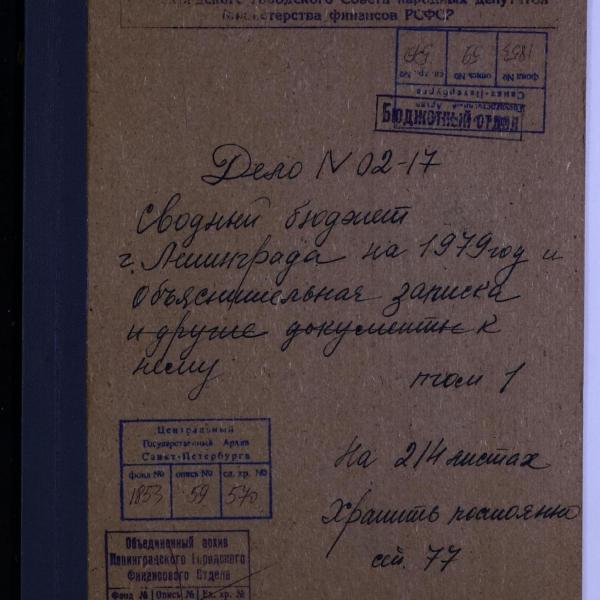 городского Совета народных депутатов
Министерства финансов РСФСР
Центральный Государственный Архив
Санкт-Петербурга
фонд № опись № ед. хр. №
1853 59 570
Бюджетный отдел
Дело N 02-17
Сводный бюджет
г. Ленинграда на 1979 год и
объяснительная записка
и другие документы к
нему
том 1
Центральный
Государственный Архив
Санкт-Петербурга
фонд № опись № ед. хр. №
1853 59 570
На 214 листах
Хранить постоянно
ст. 77
Объединенный архив
Ленинградского Городского
Финансового Отдела
Фонд № Опись № Ед. хр. №